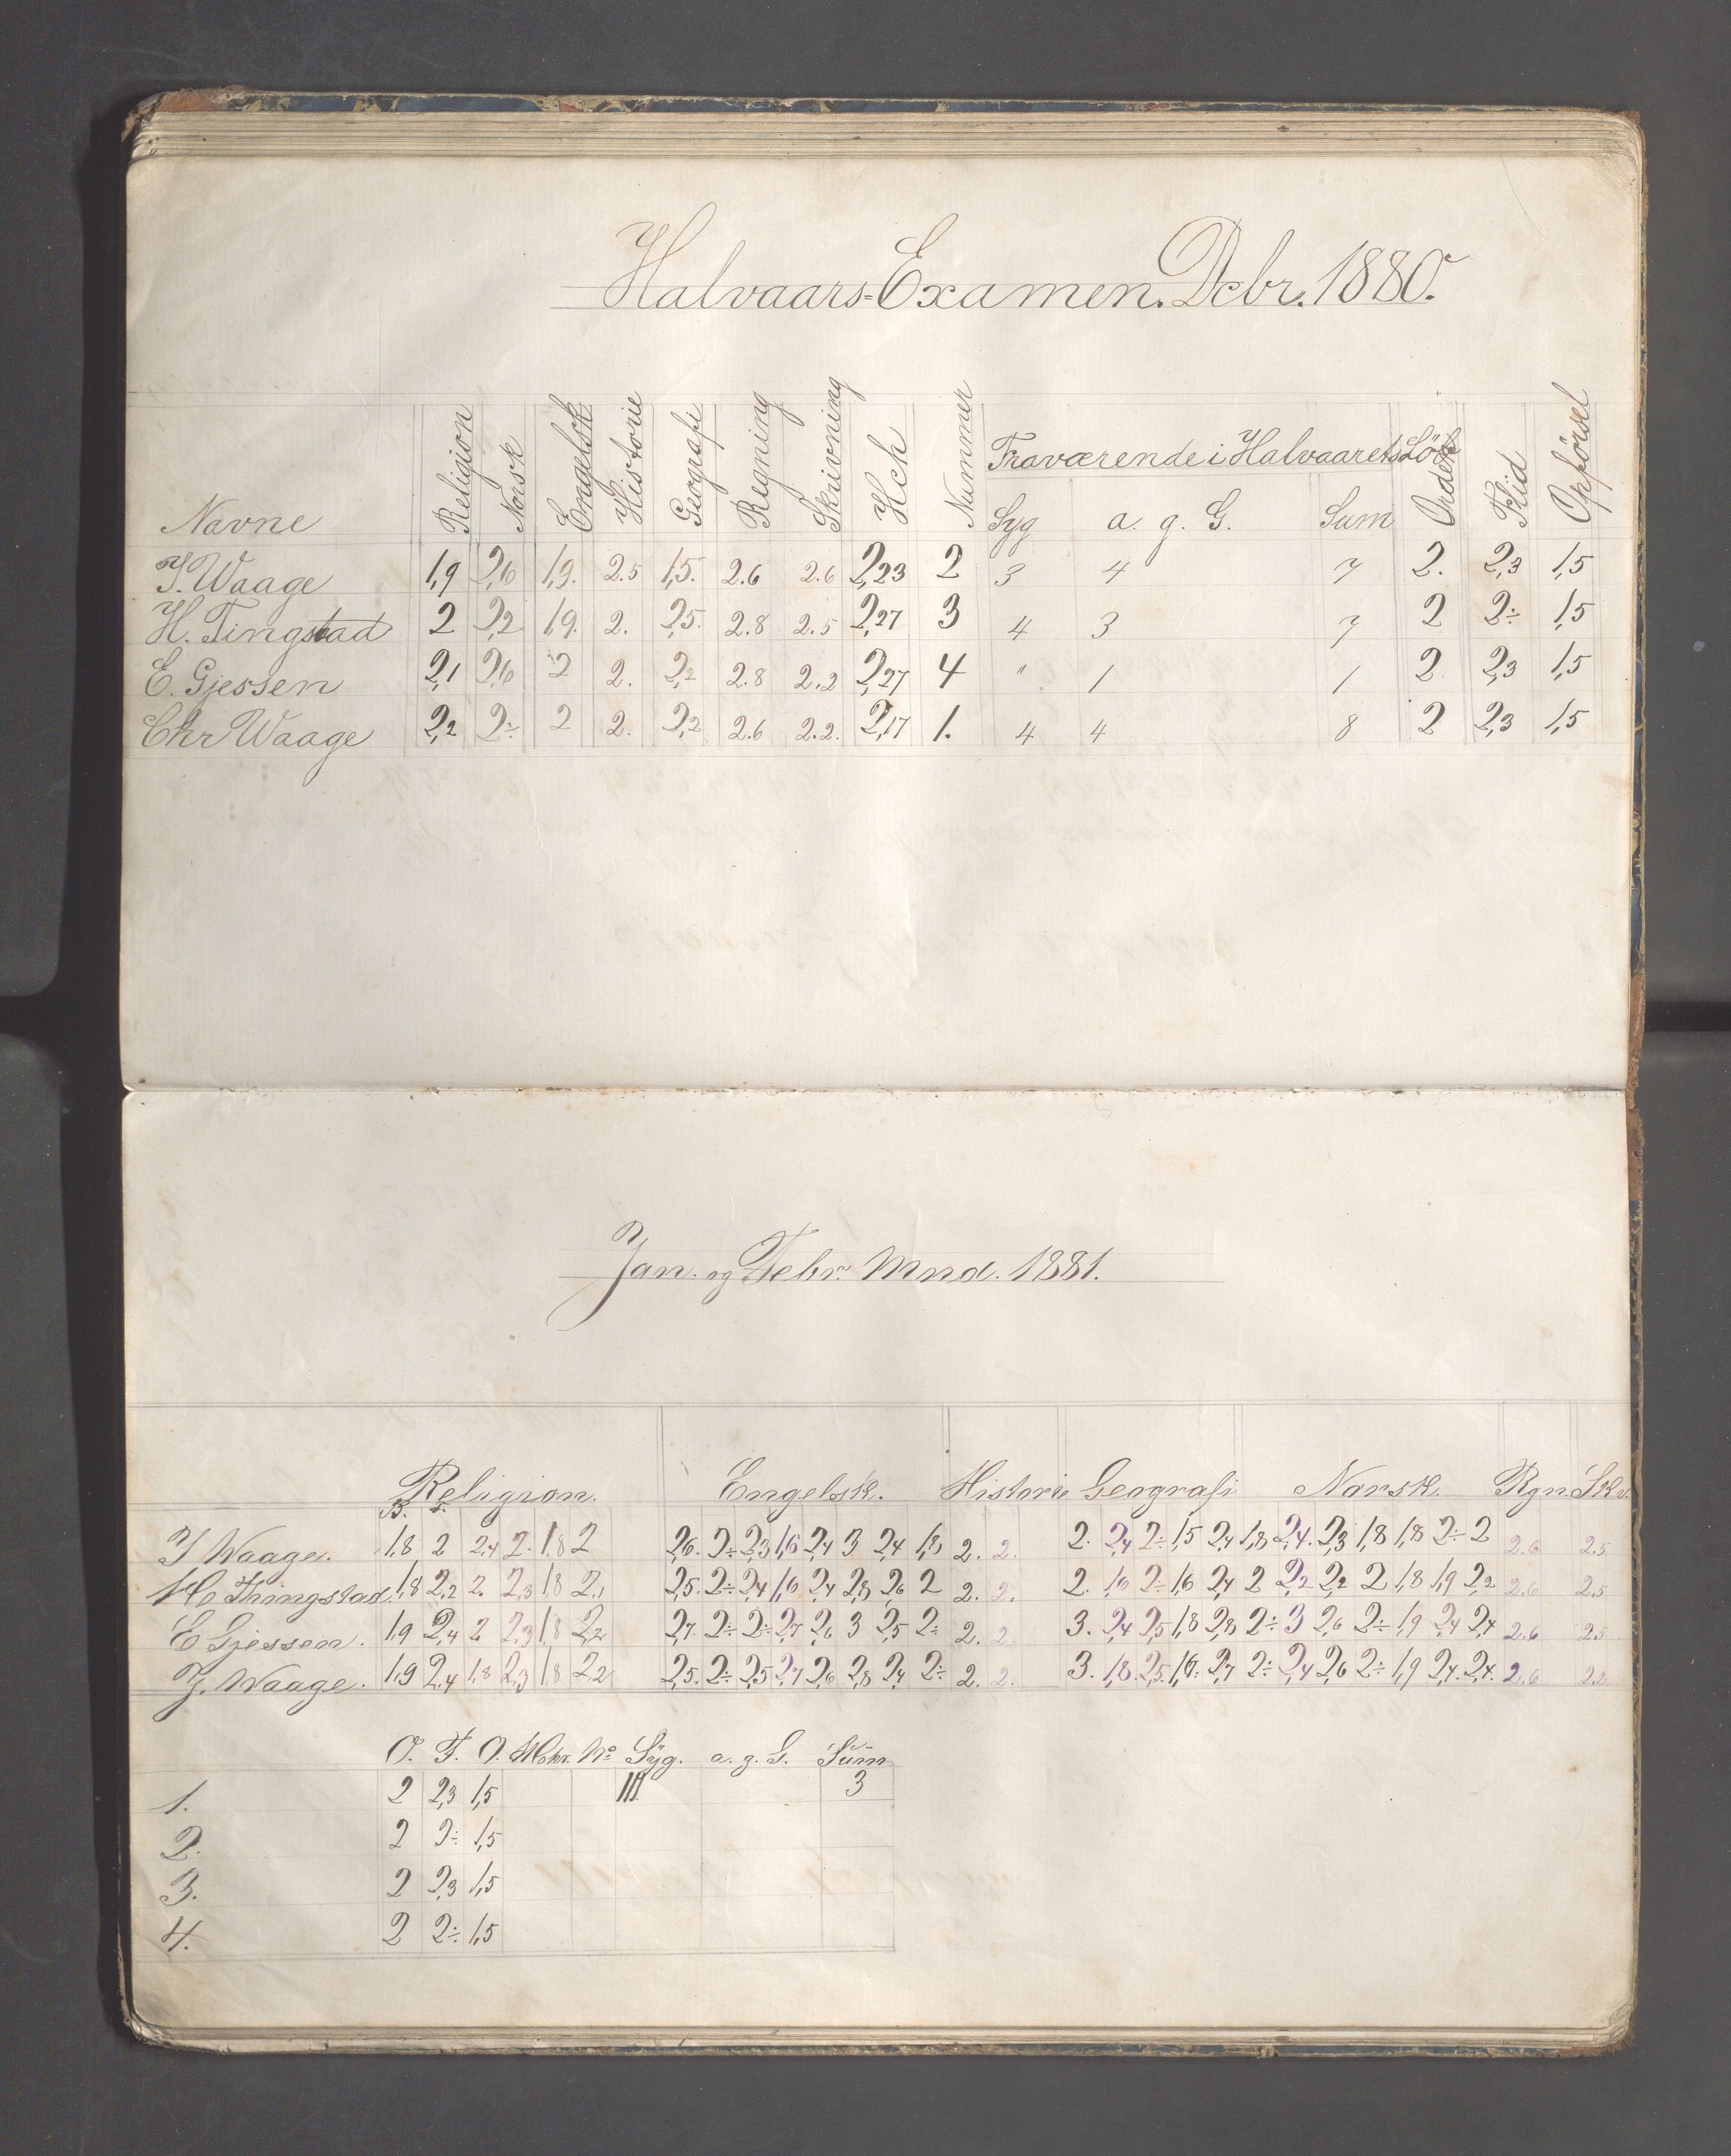 Halvaars=Examen. Debr. 1880.
Navne Religion Norsk Engelsk Historie Geografi Regning Skrivning Hch Nummer Fraværende i Halvaarets Löb Syg a. g. G. Sum Orden Flid Opførsel
J. Waage 1,9 2,6 1,9. 2.5 1,5. 2.6 2.6 2,23 2 3 4 7 2. 2,3 1,5
H. Tingstad 2 2,2 1,9. 2. 2,5. 2.8 2.5 2,27 3 4 3 7 2 2÷ 1,5
E. Gjessen 2,1 2,6 2 2. 2,2 2.8 2.2 2,27 4 " 1 1 2 2,3 1,5
Chr Waage 2,2 2÷ 2 2. 2,2 2.6 2.2. 2,17 1. 4 4 8 2 2,3 1,5
Jan. og Febr. Mnd. 1881.
Religion. Engelsk. Historie Geografi Norsk. Rgn. Skr.
B.
J Waage. 1,8 2 2,4 2. 1,8 2 2,6. 2÷ 2,3 1,6 2,4 3 2,4 1,8 2. 2. 2. 2,4 2÷ 1,5 2,4 1,8 2,4. 2,3 1,8 1,8 2÷ 2 2.6 2.5
H Thingstad 1,8 2,2 2 2,3 1,8 2,1 2,5. 2÷ 2,4 1,6 2,4 2,8 2,6 2 2. 2. 2. 1,6 2÷ 1,6 2,4 2 2,2 2,2 2 1,8 1,9 2,2 2.6 2.5
E Gjessen. 1,9 2,4 2 2,3 1,8 2,2 2,7. 2÷ 2÷ 2,7 2,6 3 2,5 2÷ 2. 2 3. 2,4 2,5 1,8 2,8 2÷ 3 2,6 2÷ 1,9 2,4 2,4 2.6 2.5
J. Waage. 1,9 2,4 1,8 2,3 1,8 2,2 2,5. 2÷ 2,5 2,7 2,6 2,8 2,4 2÷ 2. 2. 3. 1,8. 2,5. 1,6. 2,7 2÷ 2,4 2,6 2÷ 1,9 2,4. 2,4. 2.6 2.2
O. F. O. Hchr. No Syg. a. g. G. Sum
1. 2 2,3 1,5 III 3
2. 2 2÷ 1,5
3. 2 2,3 1,5
4. 2 2÷ 1,5